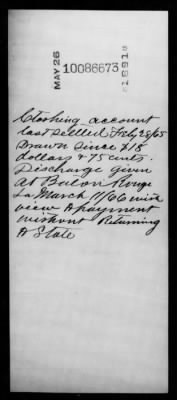 MAY 26
10086673
1881
Clothing account
last settled Feby 28/65
Drawn since $18
dollars & 75 cents.
Discharge given
At Baton Rouge
La March 1/66 with
view to payment
without Returning
to State